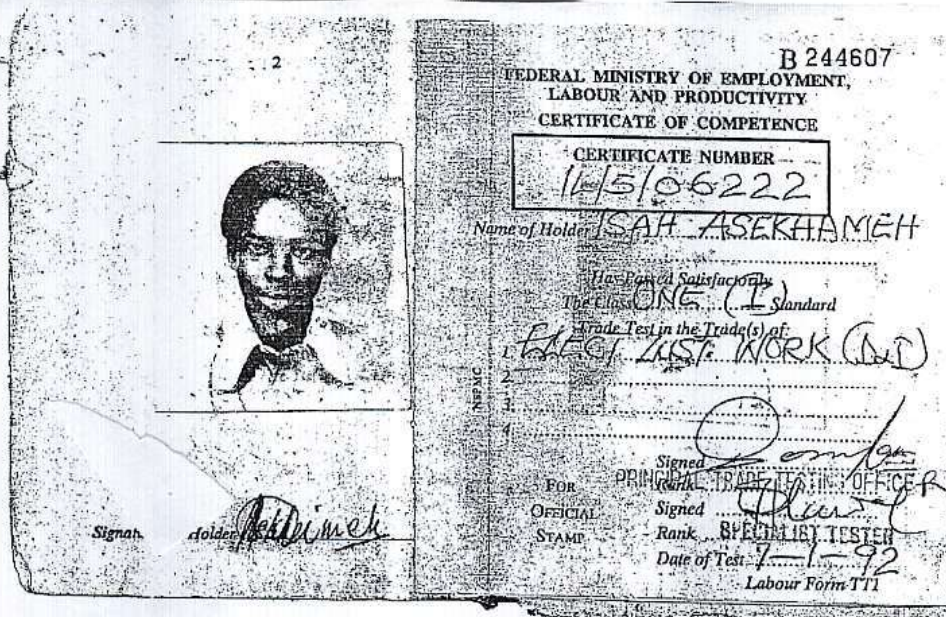 2
Signat. Holder
B 244607
FEDERAL MINISTRY OF EMPLOYMENT,
LABOUR AND PRODUCTIVITY
CERTIFICATE OF COMPETENCE
CERTIFICATE NUMBER
IL/5/06222
Name of Holder ISAH ASEKHAMEH
Has Passed Satisfactorily
The Class ONE (I) Standard
Trade Test in the Trade(s) of:
1. ELECT INST. WORK (D.I)
2
3
4
Signed
PRINCIPAL TRADE TESTING OFFICER
Signed
Rank SPECIALIST TESTER
Date of Test 7-1-92
FOR
OFFICIAL
STAMP
Labour Form TT1